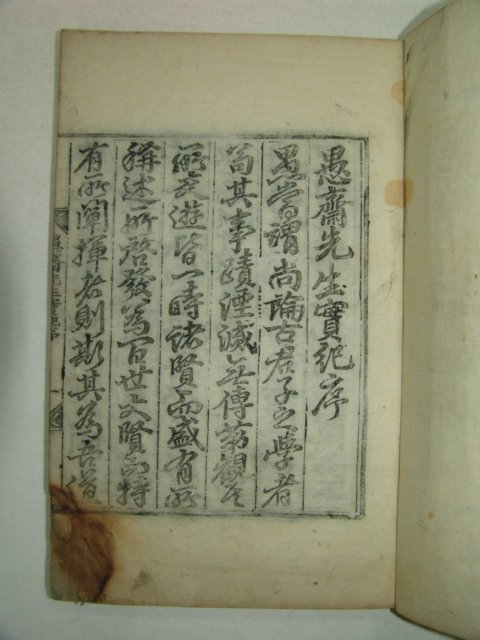 愚齋先生實紀序
愚嘗謂尚論古君子之學者
苟其事蹟湮滅無傳第觀其
所交遊皆一時諸賢而盛有所
稱述所啓發爲百世大賢而特
有所闡揮者則斯其爲吾